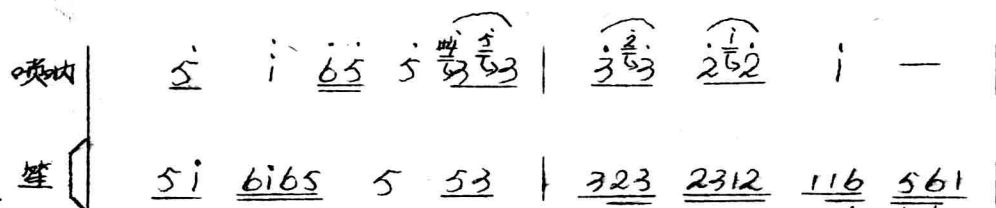 唢呐 5̇ i̇ 6̇5̇ 5̇ 3 5̇ 3 | 3̇ 2̇ 3̇ 2̇ i̇ 2̇ i̇ —
笙 5i̇ 6i̇65 5 53 | 323 2312 116̣ 5̣6̣1